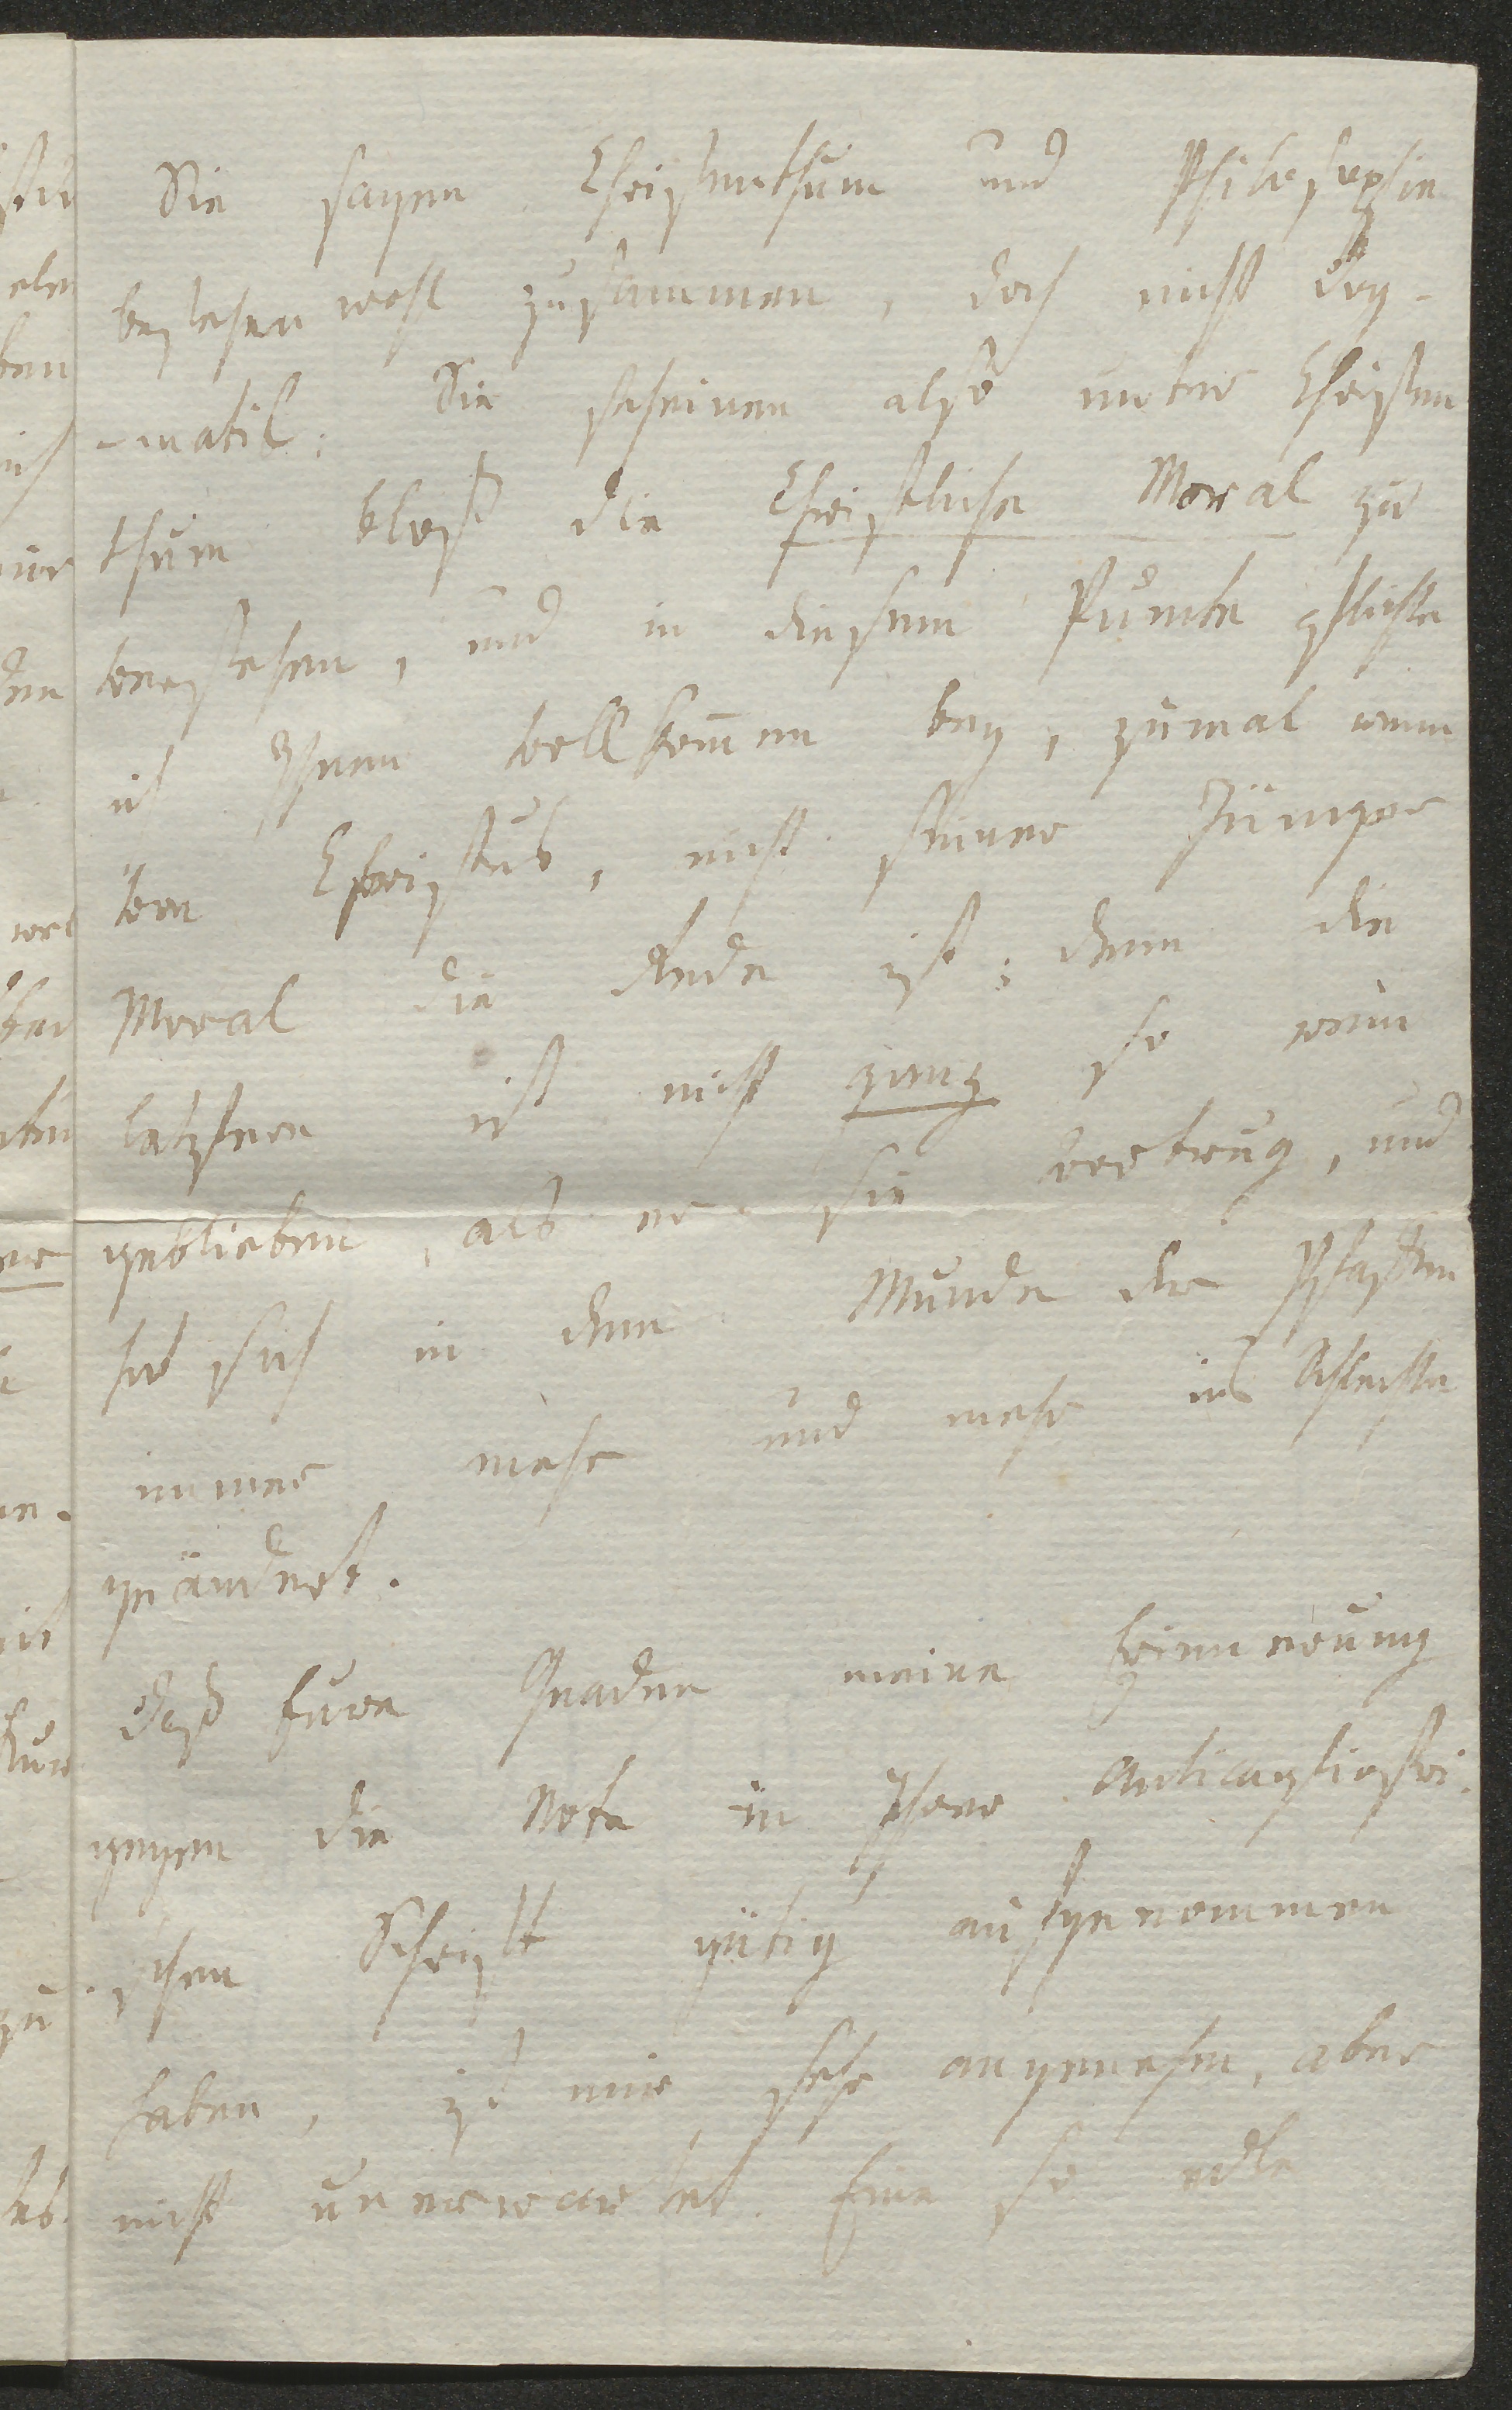 Sie sagen Christenthum und Philosophie
bestehen wohl zusammen, doch nicht Dog-
-matik: Sie scheinen also unter Christen
thum bloß die Christliche Moral zu
verstehen, und in diesem Punkte pflichte
ich Ihnen vollkommen bey, zumal wenn
von Christus, nicht seiner Jünger
Moral die Rede ist; denn die
letztern ist nicht ganz so rein
geblieben, als er sie vortrug, und
hat sich in dem Munde der Pfaffen
immer mehr und mehr ins Schlechte
geändert.
Daß Eure Gnaden meine Erinnerung
gegen die Note in Ihrer Anticagliostri-
-schen Schrift gütig aufgenommen
haben, ist mir sehr angenehm, aber
nicht unerwartet. Eine so edle